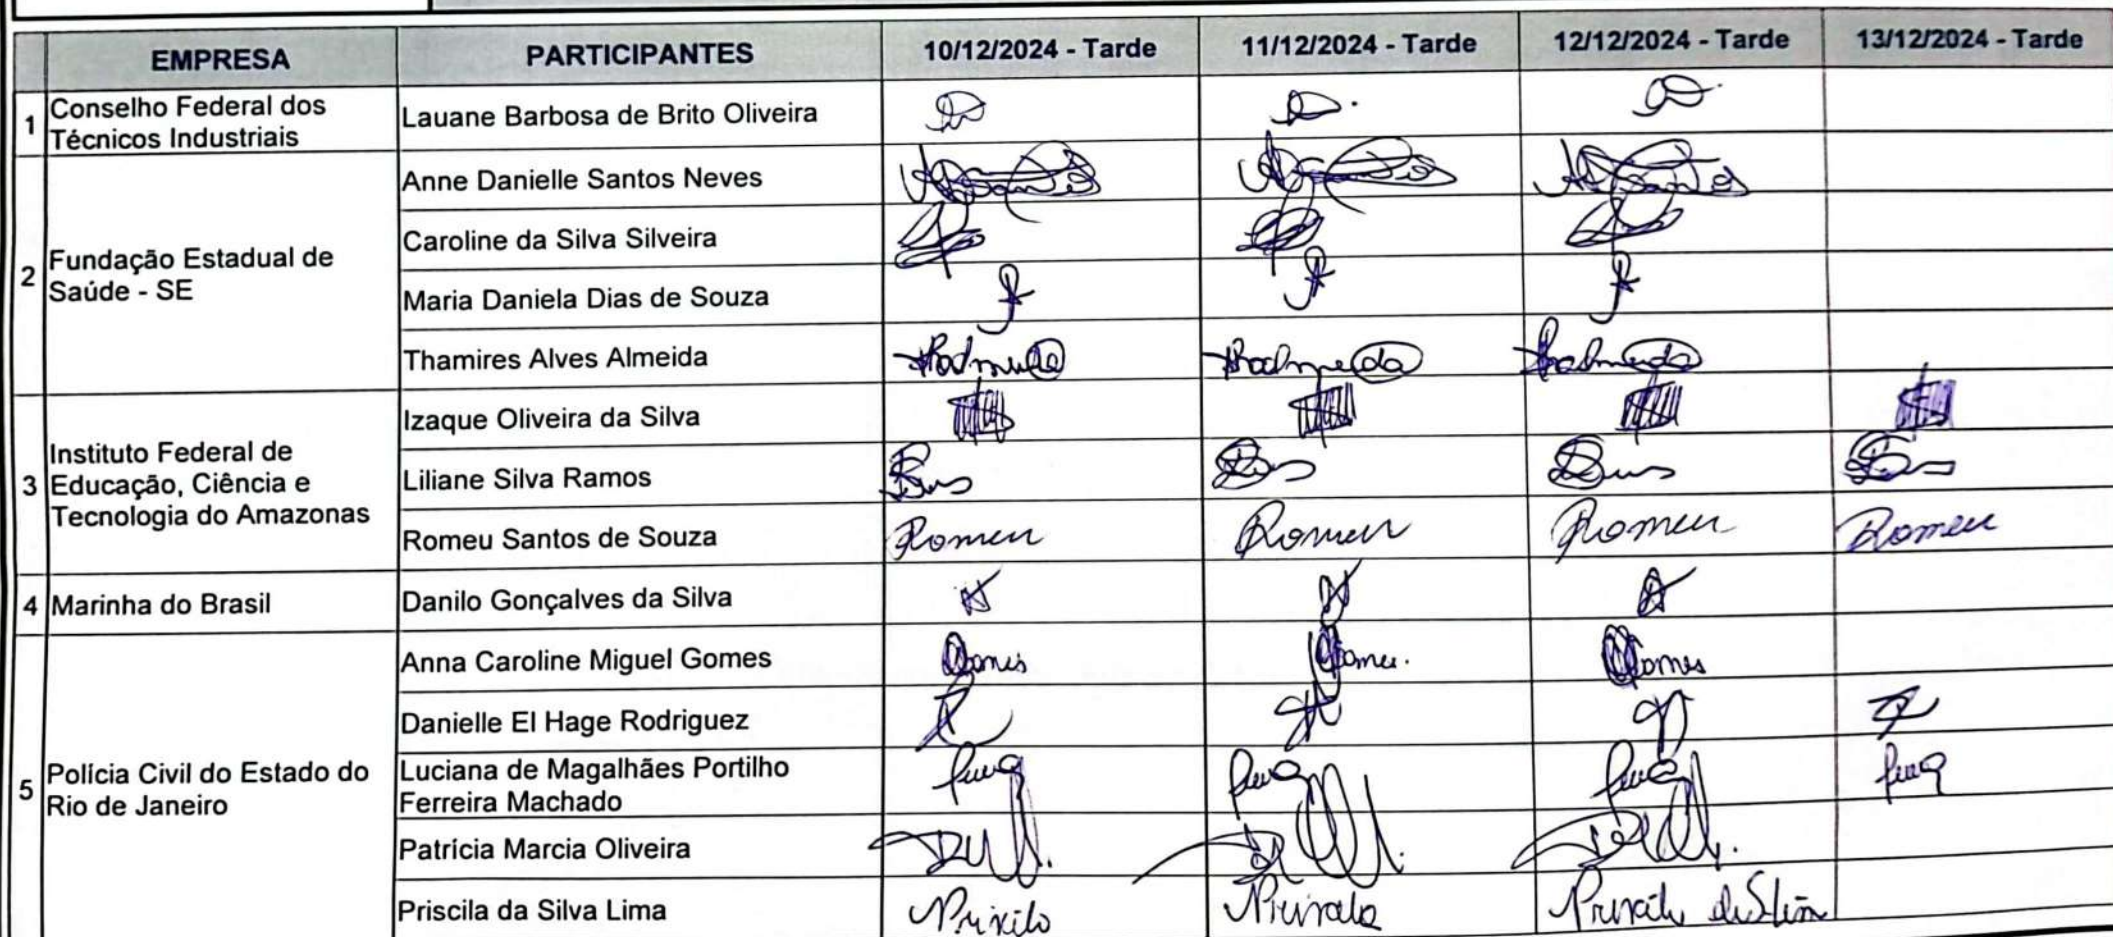 EMPRESA PARTICIPANTES 10/12/2024 - Tarde 11/12/2024 - Tarde 12/12/2024 - Tarde 13/12/2024 - Tarde
1 Conselho Federal dos Técnicos Industriais
Lauane Barbosa de Brito Oliveira
2 Fundação Estadual de Saúde - SE
Anne Danielle Santos Neves
Caroline da Silva Silveira
Maria Daniela Dias de Souza
Thamires Alves Almeida
3 Instituto Federal de Educação, Ciência e Tecnologia do Amazonas
Izaque Oliveira da Silva
Liliane Silva Ramos
Romeu Santos de Souza Romeu Romeu Romeu Romeu
4 Marinha do Brasil
Danilo Gonçalves da Silva
5 Polícia Civil do Estado do Rio de Janeiro
Anna Caroline Miguel Gomes Gomes Gomes. Gomes
Danielle El Hage Rodriguez
Luciana de Magalhães Portilho
Ferreira Machado
Patrícia Marcia Oliveira
Priscila da Silva Lima